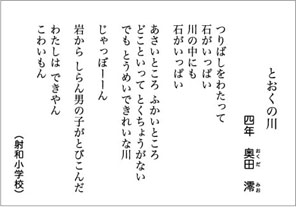 とおくの川
四年 奥田 澪
おくだ みお
つりばしをわたって
石がいっぱい
川の中にも
石がいっぱい
あさいところ ふかいところ
どこといって とくちょうがない
でも とうめいできれいな川
じゃっぽーーん
岩から しらん男の子がとびこんだ
わたしは できやん
こわいもん
(射和小学校)